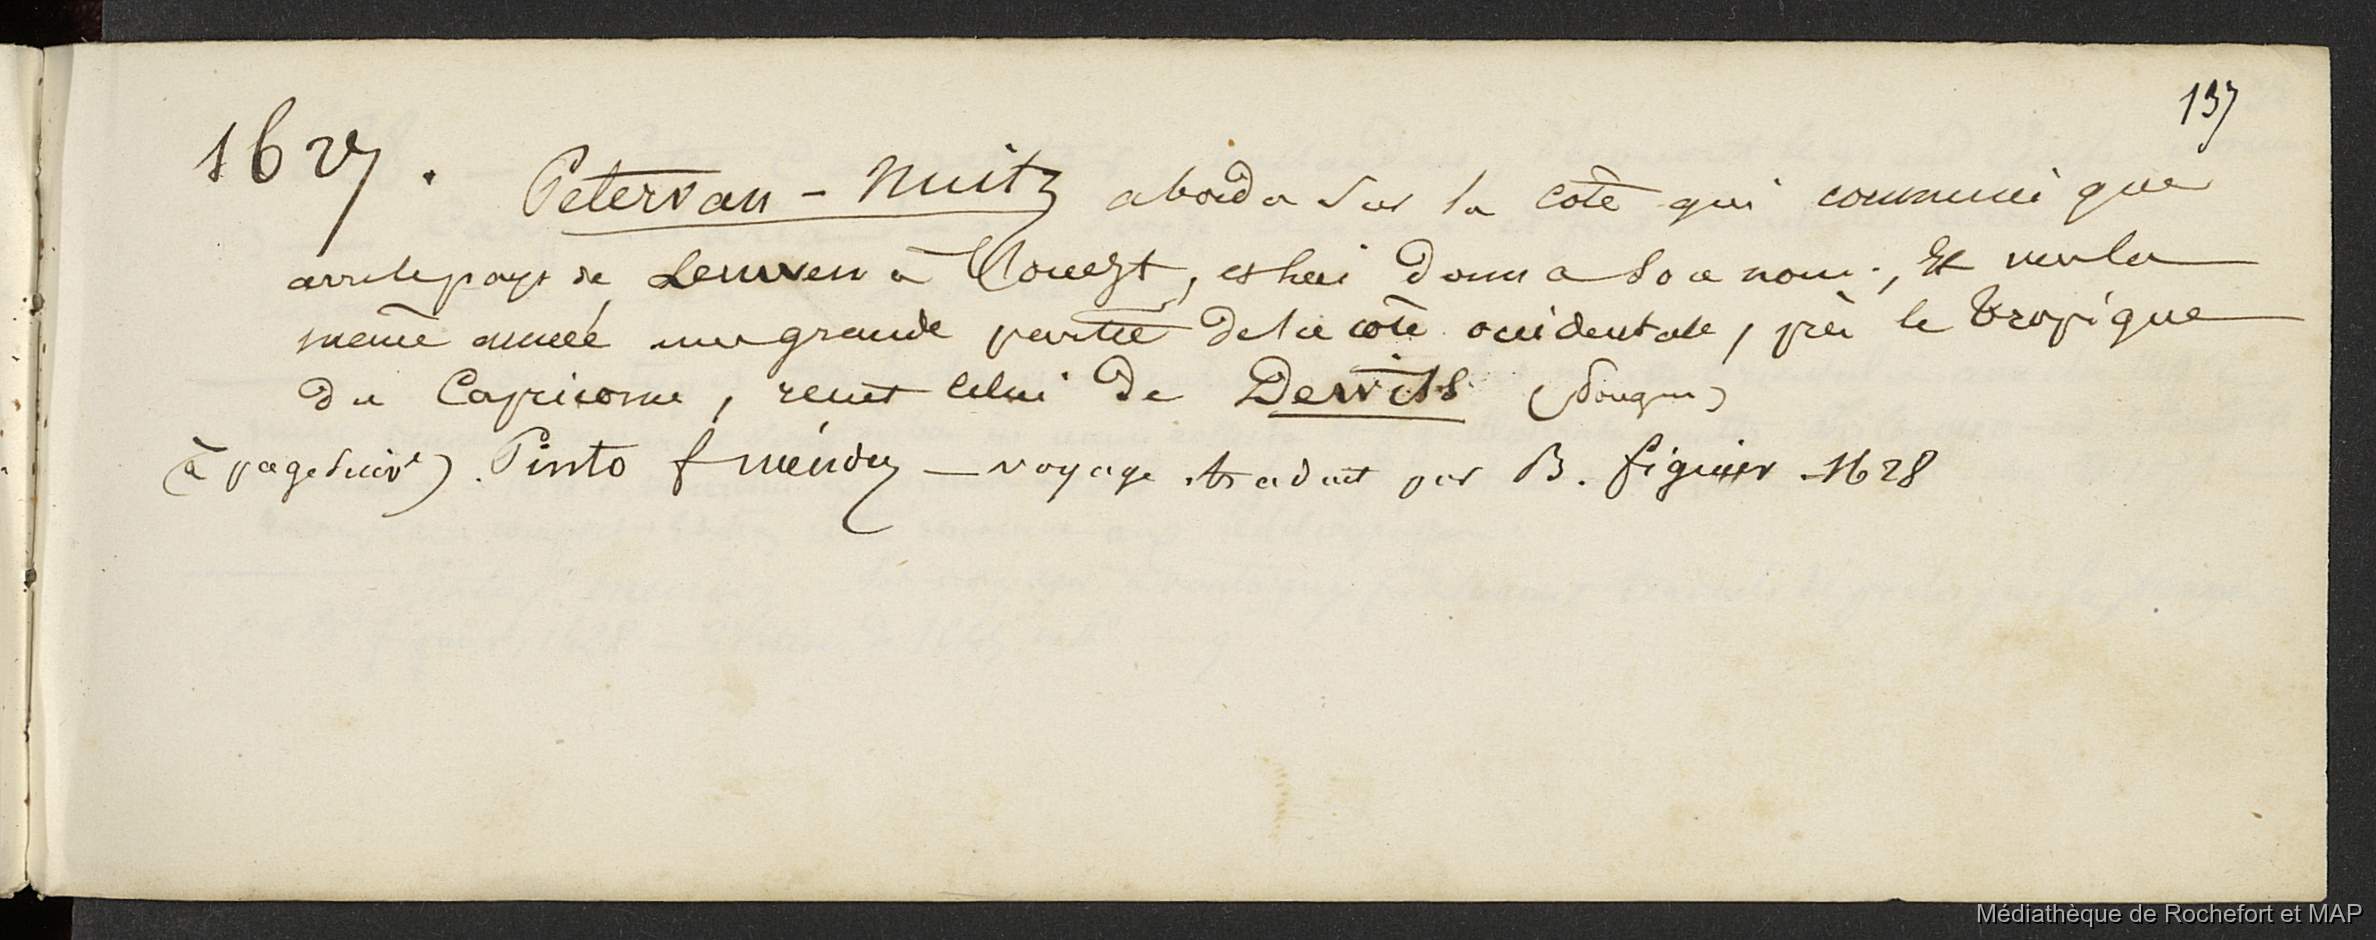 137
1627.
Petervan - Nuitz aborda sur la côte qui communique
avec le pays de Leuwen à l'ouest, et lui donna son nom ., Et vers la
même année une grande partie de la côte occidentale, près le tropique
du Capricorne, reçut celui de Dewits
(à page suivte) . Pinto f mendez — voyage traduit par B. figuier - 1628
Médiathèque de Rochefort et MAP